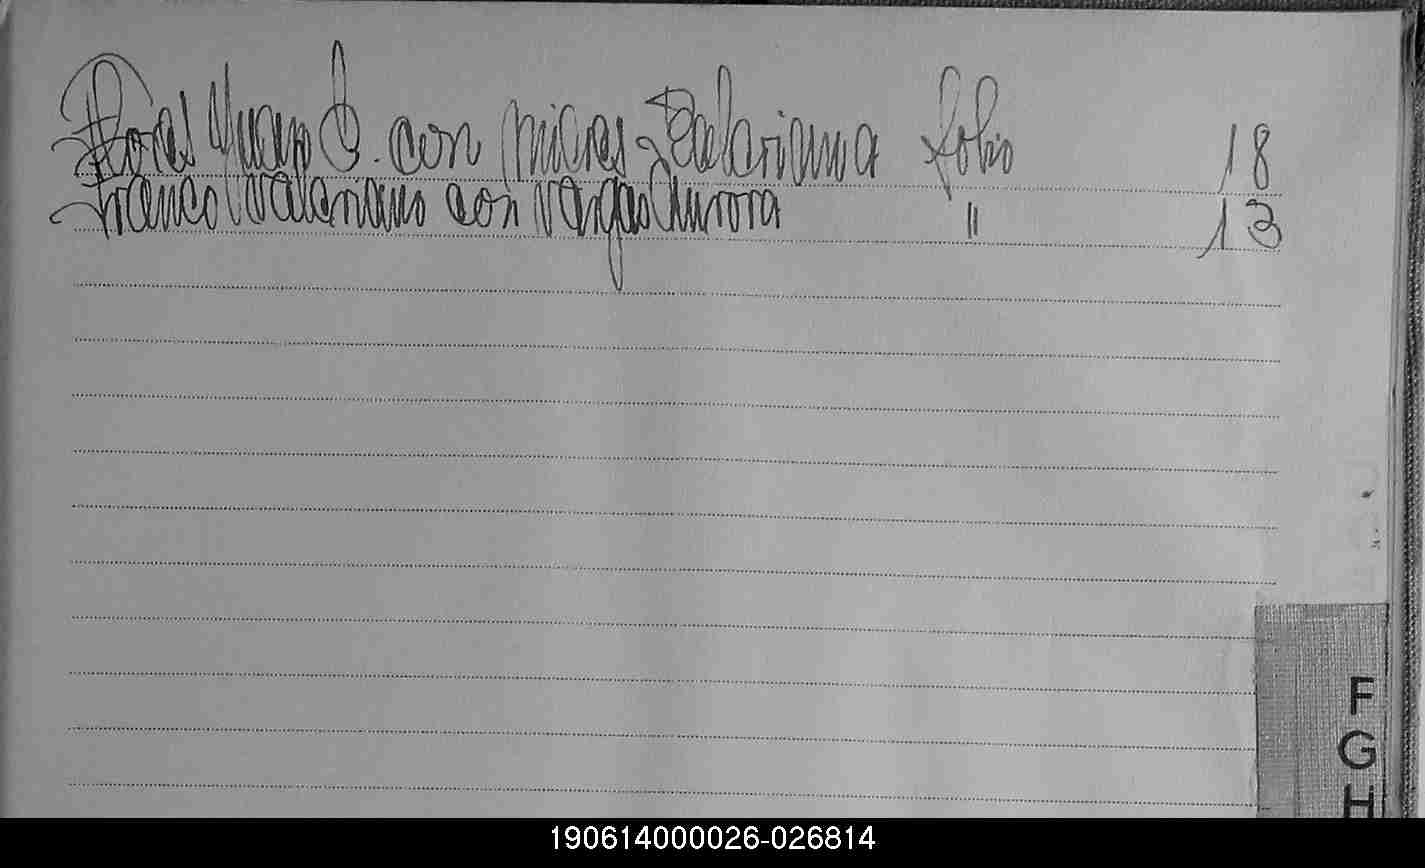 Flores Juan J. con Micres Feleriana folio 18
Franco Valeriano con Vargas Aurora " 13
F
G
H
190614000026-026814